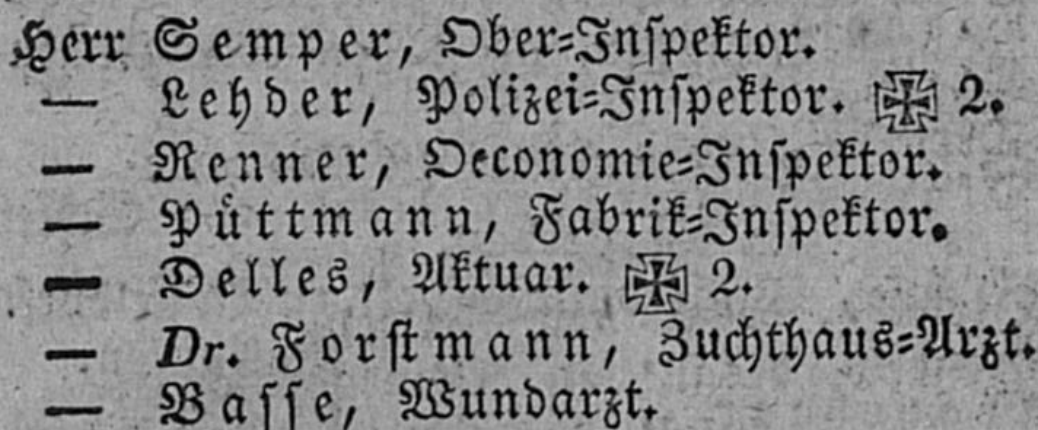 Herr Semper, Ober-Inspektor.
— Lehder, Polizei-Inspektor. ✠ 2.
— Renner, Oeconomie-Inspektor.
— Püttmann, Fabrik-Inspektor.
— Delles, Aktuar. ✠ 2.
— Dr. Forstmann, Zuchthaus-Arzt.
— Basse, Wundarzt.